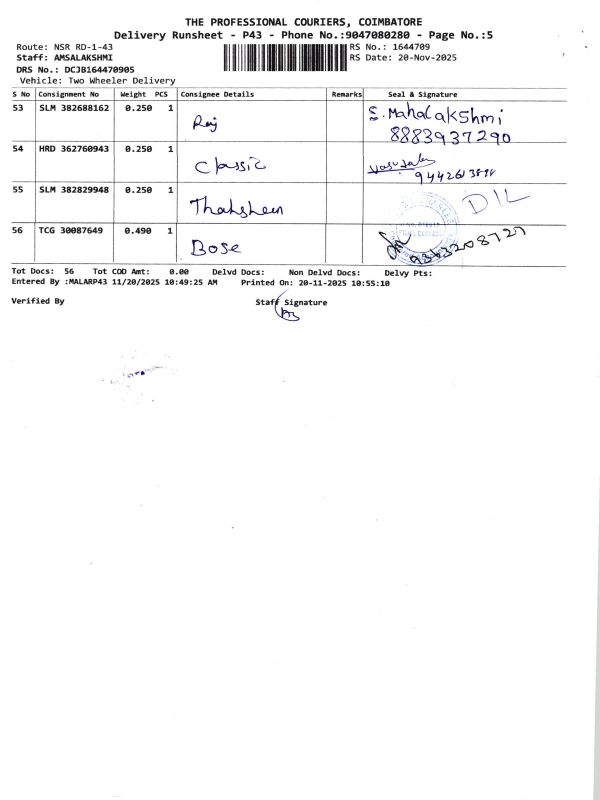 THE PROFESSIONAL COURIERS, COIMBATORE
Delivery Runsheet - P43 - Phone No.:9047080280 - Page No.:5
Route: NSR RD-1-43 RS No.: 1644709
Staff: AMSALAKSHMI RS Date: 20-Nov-2025
DRS No.: DCJB164470905
Vehicle: Two Wheeler Delivery
S No Consignment No Weight PCS Consignee Details Remarks Seal & Signature
53 SLM 382688162 0.250 1 Raj S. Mahalakshmi
8883937290
54 HRD 362760943 0.250 1 Classic
55 SLM 382829948 0.250 1 Thahsheen DIL
56 TCG 30087649 0.490 1 Bose 9363208727
Tot Docs: 56 Tot COD Amt: 0.00 Delvd Docs: Non Delvd Docs: Delvy Pts:
Entered By :MALARP43 11/20/2025 10:49:25 AM Printed On: 20-11-2025 10:55:10
Verified By Staff Signature